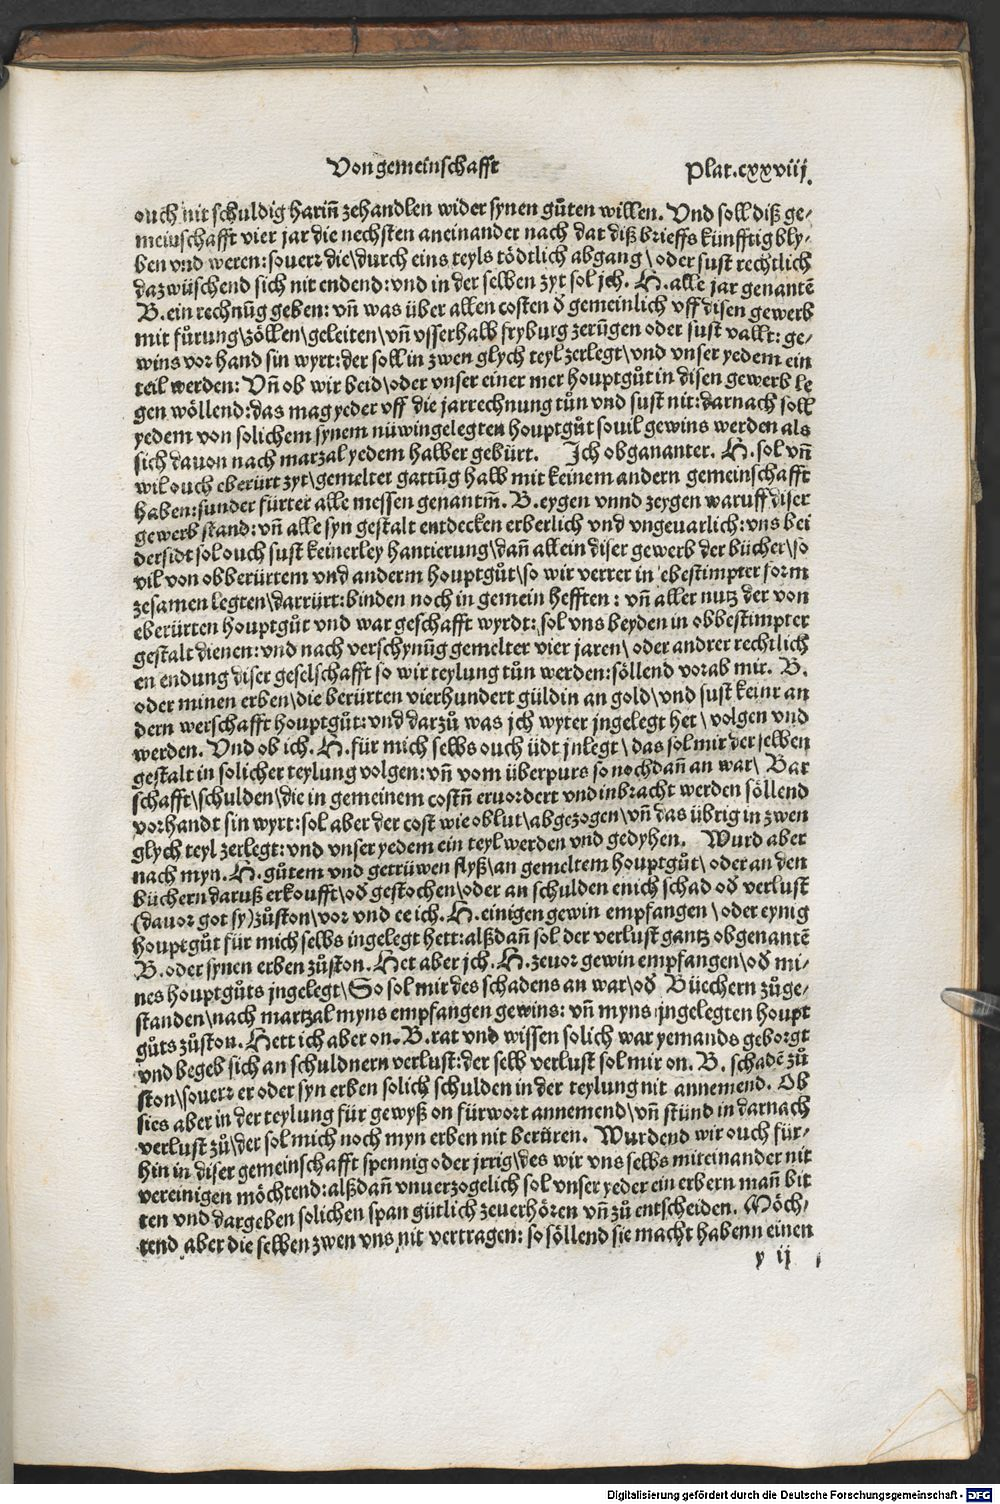 Von gemeinschafft Plat.cxxviij.
ouch nit schuldig harin̄ zehandlen wider synen gůten willen. Vnd soll diß ge⸗
meinschafft vier jar die nechsten aneinander nach dat diß brieffs künfftig bly⸗
ben vnd weren:souerr die\durch eins teyls tödtlich abgang\ oder sust rechtlich
dazwüschend sich nit endend:vnd in der selben zyt sol jch. H. alle jar genantē
B. ein rechnūg geben: vn̄ was über allen costen đ gemeinlich vff disen gewerb
mit fůrung\zöllen\geleiten\vn̄ vsserhalb fryburg zerügen oder sust vallt: ge⸗
wins vor hand sin wyrt:der soll in zwen glych teyl zerlegt\vnd vnser yedem ein
teil werden: Vn̄ ob wir beid\oder vnser einer mer houptgůt in disen gewerb le
gen wöllend:das mag yeder vff die jarrechnung tůn vnd sust nit:darnach soll
yedem von solichem synem nüwingelegten houptgůt souil gewins werden als
sich davon nach marzal yedem halber gebürt. Ich obgananter. H. sol vn̄
wil ouch eberürt zyt\gemelter gattūg halb mit keinem andern gemeinschafft
haben:sunder fürter alle messen genantm̄. B. eygen vnnd zeygen waruff diser
gewerb stand:vn̄ alle syn gestalt entdecken erberlich vnd vngeuarlich:vns bei
dersidt sol ouch sust keinerley hantierung\dan̄ allein diser gewerb der bücher\so
vil von obberürtem vnd anderm houptgůt\so wir verrer in ebestimpter form
zesamen legten\darrürt:binden noch in gemein hefften: vn̄ aller nutz der von
eberürten houptgůt vnd war geschafft wyrdt: sol vns beyden in obbestimpter
gestalt dienen:vnd nach verschynūg gemelter vier jaren\ oder andrer rechtlich
en endung diser geselschafft so wir teylung tůn werden:söllend vorab mir. B.
oder minen erben\die berürten vierhundert güldin an gold\vnd sust keinr an
dern werschafft houptgůt:vnd darzů was jch wyter jngelegt het\ volgen vnd
werden. Vnd ob ich. H. für mich selbs ouch üdt jnlegt\ das sol mir der selben
gestalt in solicher teylung volgen:vn̄ vom überpurs so nochdan̄ an war\ Bar
schafft\schulden\die in gemeinem costn̄ eruordert vnd inbracht werden söllend
vorhandt sin wyrt:sol aber der cost wie oblut\abgezogen\vn̄ das übrig in zwen
glych teyl zerlegt:vnd vnser yedem ein teyl werden vnd gedyhen. Wurd aber
nach myn. H. gůtem vnd getrüwen flyß\an gemeltem houptgůt\ oder an den
büchern daruß erkoufft\ođ gestochen\oder an schulden enich schad ođ verlust
(dauor got sy)zůston\vor vnd ee ich. H. einigen gewin empfangen\ oder eynig
houptgůt für mich selbs ingelegt hett:alßdan̄ sol der verlust gantz obgenantē
B. oder synen erben zůston. Het aber jch. H. zeuor gewin empfangen\ođ mi⸗
nes houptgůts jngelegt\So sol mir des schadens an war\ođ Büechern zůge⸗
standen\nach martzal myns empfangen gewins: vn̄ myns jngelegten houpt
gůts zůston. Hett ich aber on. B. rat vnd wissen solich war yemands geborgt
vnd begeb sich an schuldnern verlust:der selb verlust sol mir on. B. schadē zů
ston\souerr er oder syn erben solich schulden in der teylung nit annemend. Ob
sies aber in der teylung für gewyß on fürwort annemend\vn̄ stünd in darnach
verlust zů\der sol mich noch myn erben nit berüren. Wurdend wir ouch für⸗
hin in diser gemeinschafft spennig oder jrrig\des wir vns selbs miteinander nit
vereinigen möchtend:alßdan̄ vnuerzogelich sol vnser yeder ein erbern man̄ bit
ten vnd dargeben solichen span gütlich zeuerhören vn̄ zů entscheiden. Möch⸗
tend aber die selben zwen vns nit vertragen: so söllend sie macht habenn einen
y ij
Digitalisierung gefördert durch die Deutsche Forschungsgemeinschaft - DFG